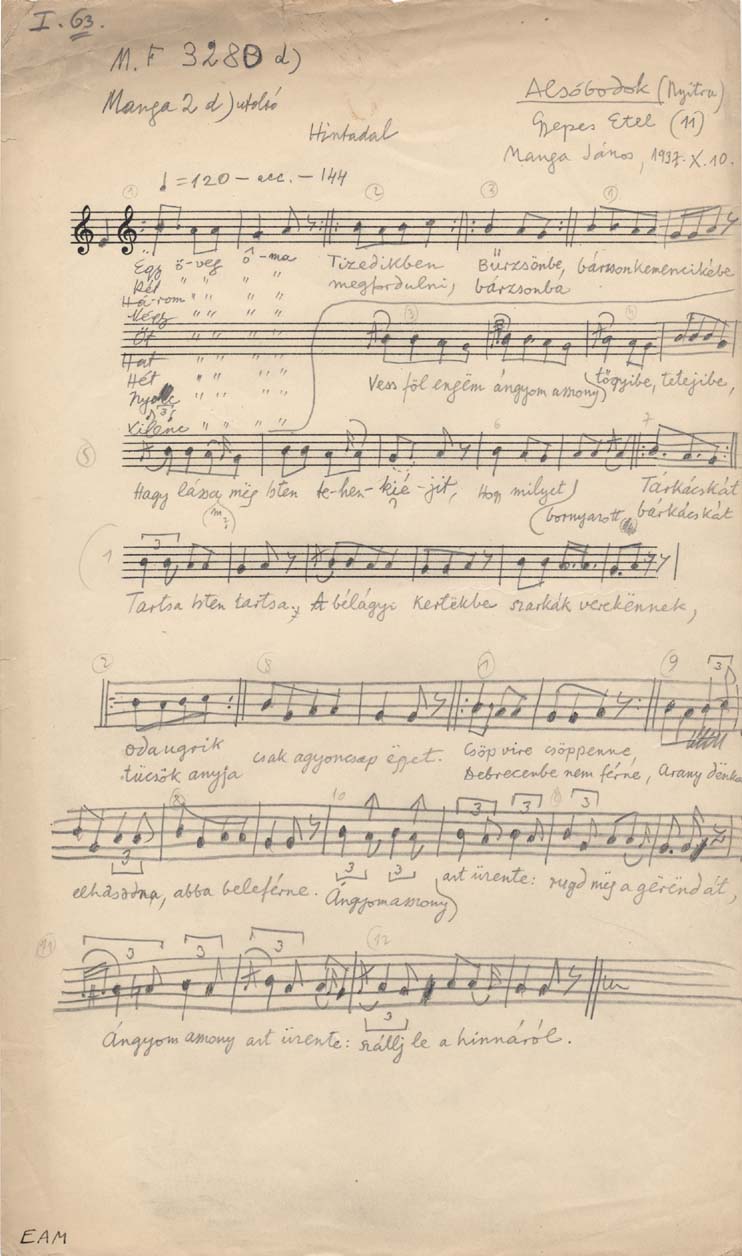 I. 63.
M. F 3280 d)
Manga 2 d) utolsó
Alsóbodok (Nyitra)
Gyepes Etel (11)
Manga János, 1937. X. 10.
Hintadal
♩ = 120 – acc. – 144
Egy ö-veg ó-ma
Két " " " "
Há-rom " " " "
Négy " " " "
Öt " " " "
Hat " " " "
Hét " " " "
" " " "
Kilenc " " " "
Tizedikben
megfordulni,
Bürzsönbe, bárzsonkemencikébe
bárzsonba
Vess föl engëm ángyom asszony tőgyibe, tetejibe,
Hagy lássa mëg Isten te-hen-kié-jit, Hogy milyet
Tárkácskát
bornyazott barkácskát
Tartsa Isten tartsa. A bélágyi kertëkbe szarkák verekënnek,
oda ugrik csak agyoncsap ëget. Csöp vire csöppenne,
tücsök anyja Debrecenbe nem férne, Arany dënka
elhasadna, abba beleférne. Ángyomasszony azt üzente: rugd mëg a gërëndát,
Ángyom asszony azt üzente: szállj le a hinnáról.
EAM